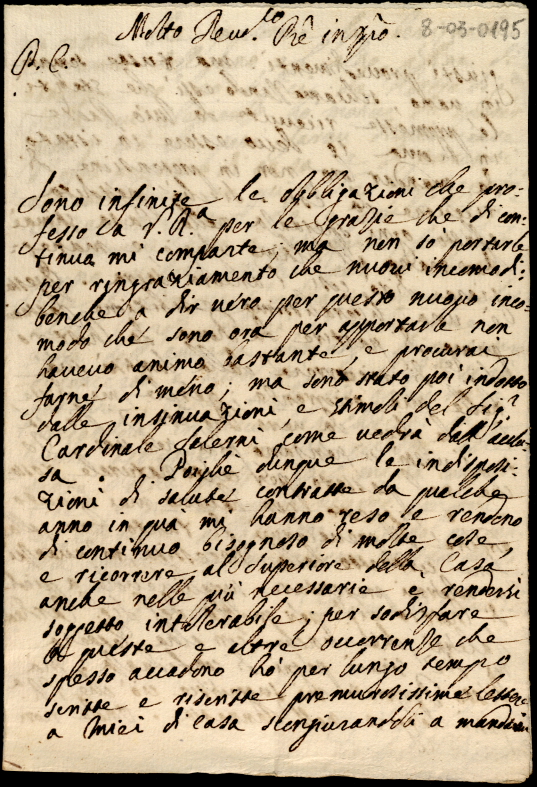 8-03-0195
Molto Reu.do Pre in Xpo.
P. C.
Sono infinite le obbligazioni che pro-
fesso a V. R.a per le grazie che di con-
tinua mi comparte, ma non so portarle
per ringraziamento che nuovi incomodi:
benche a dir uero per questo nuouo inco-
modo che sono ora per apportarle non
haueuo animo bastante, e procurai
farne di meno; ma sono stato poi indotto
dalle insinuazioni, e stimoli del Sig.r
Cardinale Salerni come uedrà dall'acclu-
sa. Poiche dunque le indisposi-
zioni di salute contratte da qualche
anno in quà mi hanno reso e rendono
di continuo bisognoso di molte cose,
e ricorrere al Superiore della Casa
anche nelle più necessarie e rendersi
soggetto intollerabile; per sodisfare
a queste e altre occorrenze che
spesso accadono hò per lungo tempo
scritte e riscritte premurosissime lettere
a miei di casa scongiurandoli a